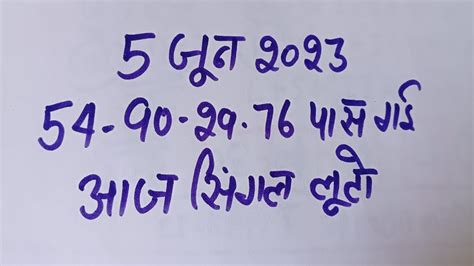 5 जून 2023
54-90-29.76 पास गई
आज सिंगल लूटो